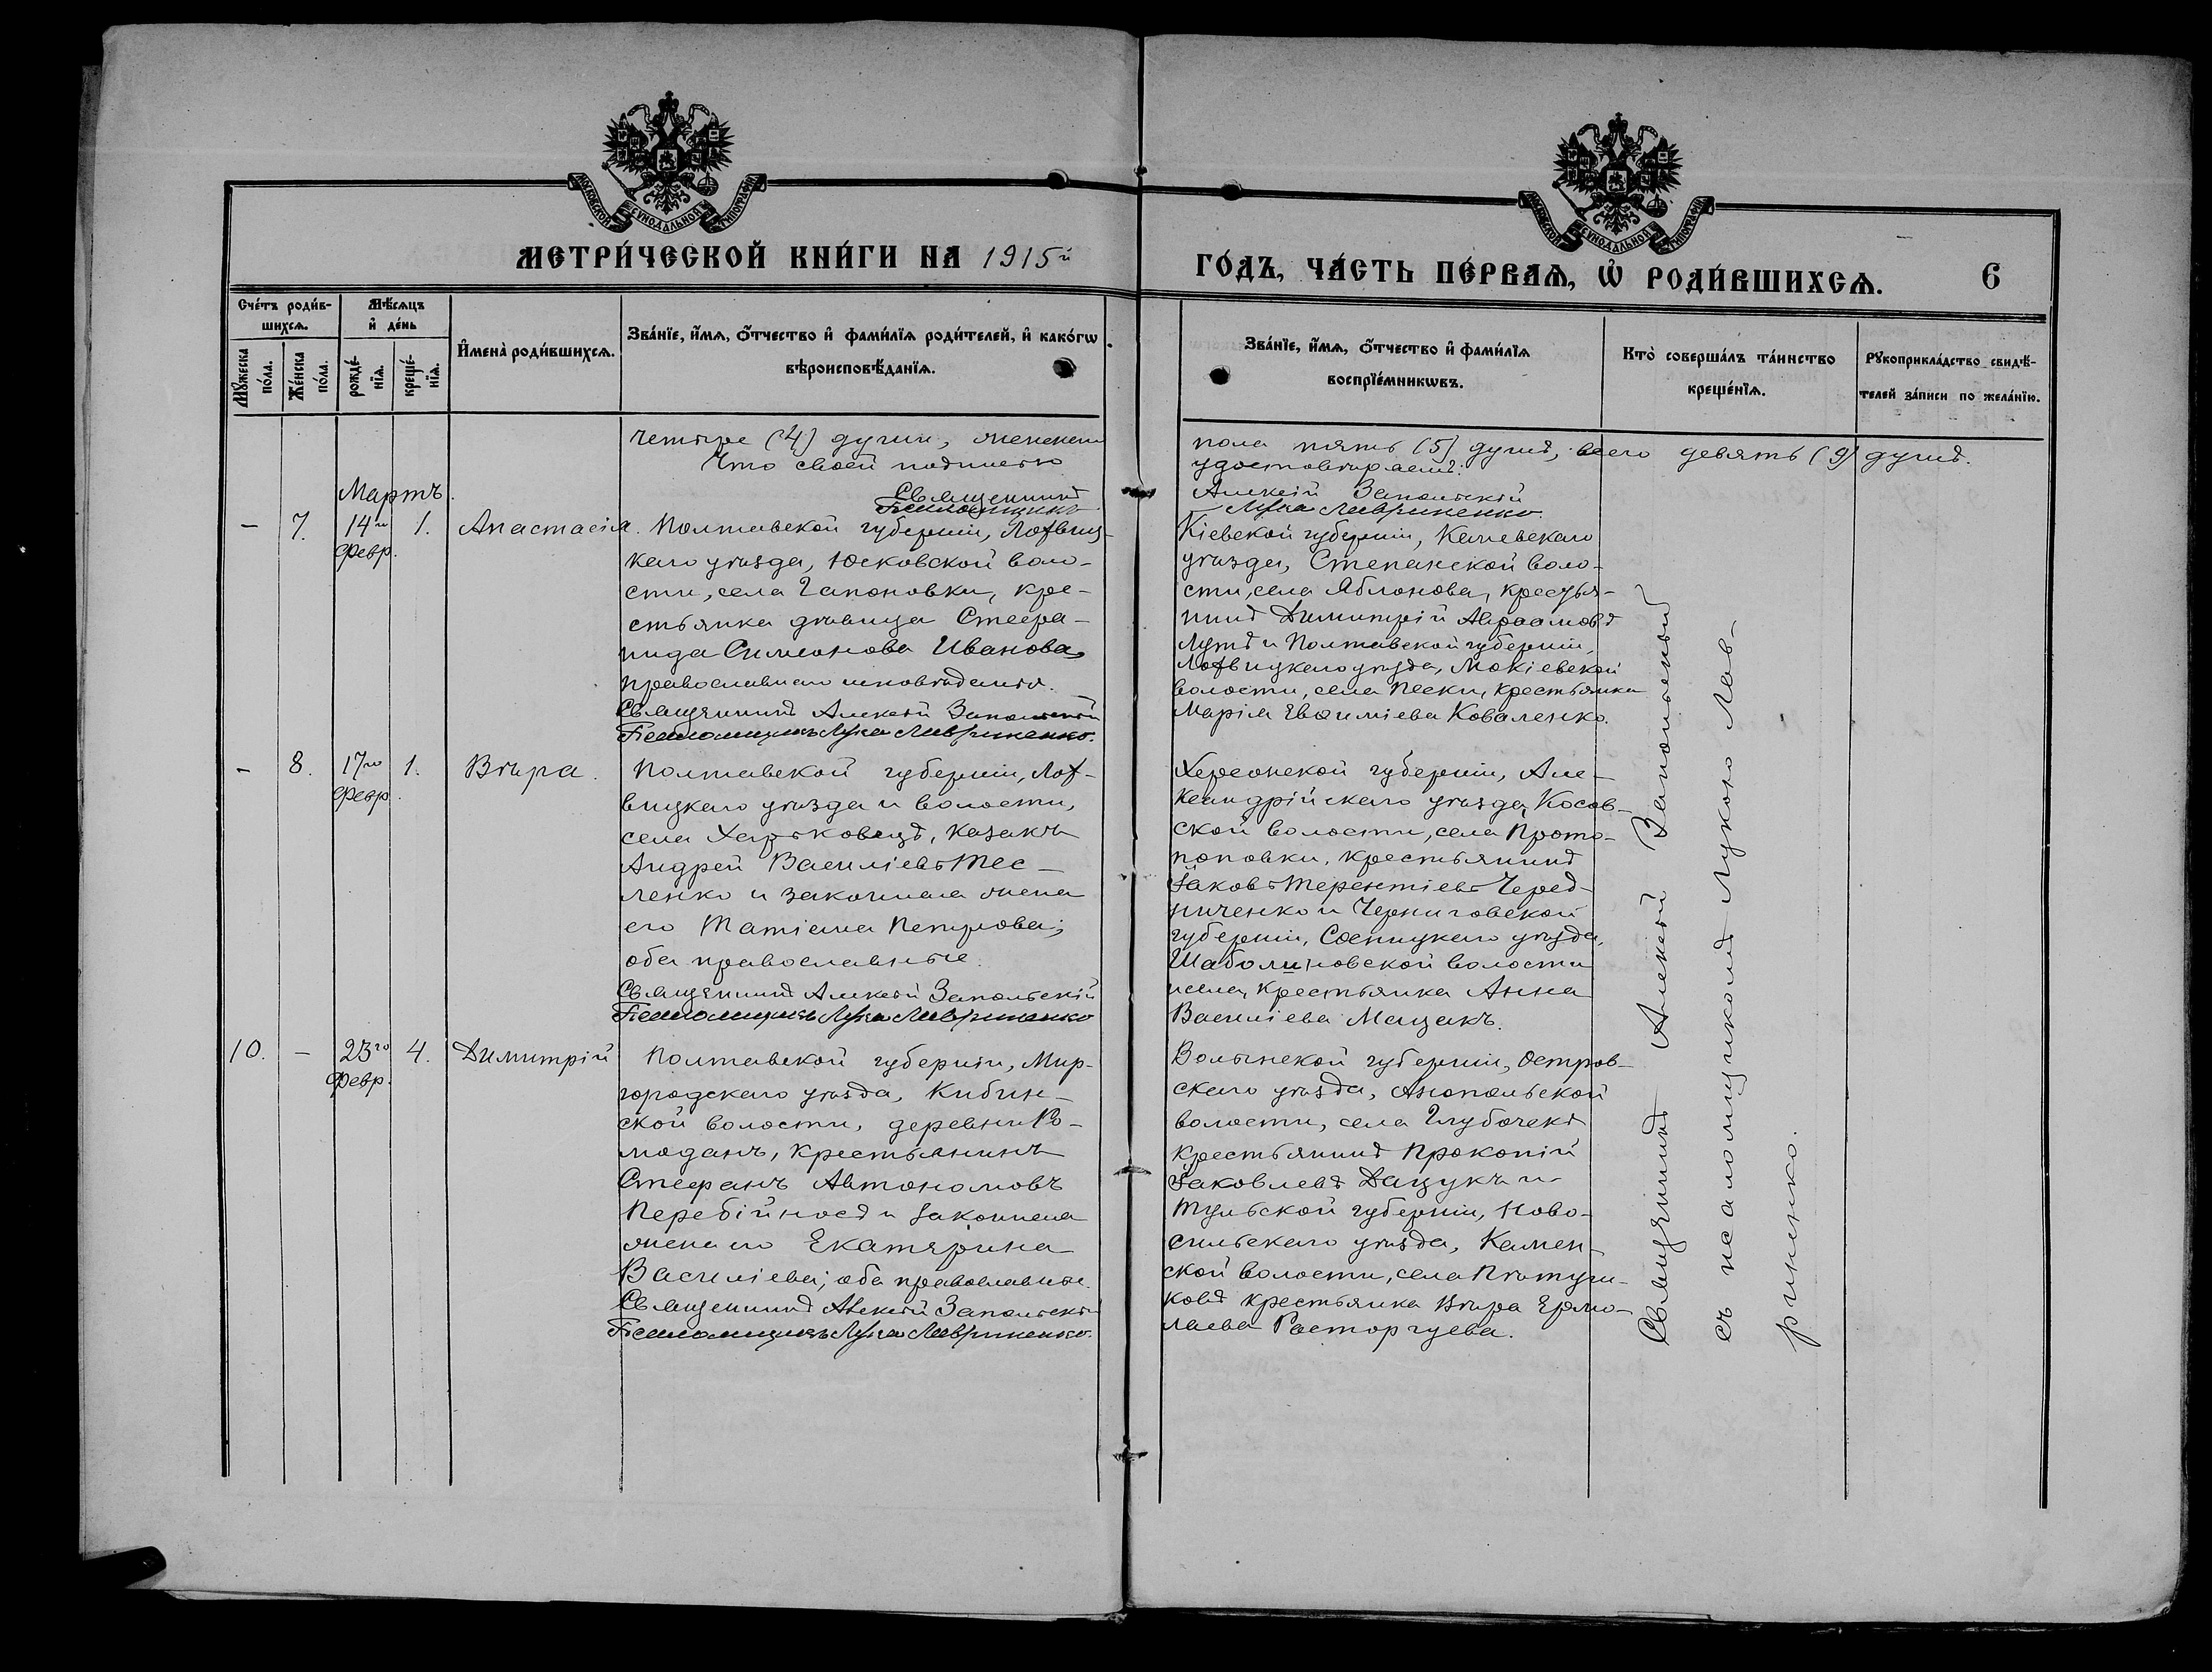 МОСКОВСКОЙ СѴНОДАЛЬНОЙ ТИПОГРАФІИ
МОСКОВСКОЙ СѴНОДАЛЬНОЙ ТИПОГРАФІИ
МЕТРИ́ЧЕСКОЙ КНИ́ГИ НА 1915й
ГО́ДЪ, ЧА́СТЬ ПЕ́РВАѦ, Ѡ҆ РОДИ́ВШИХСѦ.
6
Сче́тъ роди́в-
шихсѧ.
Мѣ́сѧцъ
и҆ де́нь
Мꙋ́жеска
по́ла.
Же́нска
по́ла.
рожде́-
нїѧ.
креще́-
нїѧ.
И҆мена̀ роди́вшихсѧ.
Зва́нїе, и҆́мѧ, ѻ҆́тчество и҆ фами́лїѧ роди́телей, и҆ како́гѡ
вѣроисповѣ́данїѧ.
Зва́нїе, и҆́мѧ, ѻ҆́тчество и҆ фами́лїѧ
воспрїе́мникѡвъ.
Кто̀ соверша́лъ та́инство
креще́нїѧ.
Рꙋкоприкла́дство свидѣ́-
телей за́писи по жела́нїю.
четыре (4) души, женскаго
пола пять (5) душъ, всего девять (9) душъ.
Что своей подписью
удостовѣряемъ:
Священникъ
Алексій Запольскій
Псаломщикъ
Лука Лавриненко.
Мартъ.
– 7. 14го 1. Анастасія.
Февр.
Полтавской губерніи, Лохвиц-
каго уѣзда, Юсковской воло-
сти, села Гапоновки, кре-
стьянка дѣвица Стефа-
нида Симеонова Иванова,
православнаго исповѣданія.
Священникъ Алексій Запольскій
Псаломщикъ Лука Лавриненко.
Кіевской губерніи, Каневскаго
уѣзда, Степанской воло-
сти, села Яблонова, крестья-
нинъ Димитрій Авраамовъ
Лутъ и Полтавской губерніи,
Лохвицкаго уѣзда, Мокіевской
волости, села Пески, крестьянка
Марія Евѳиміева Коваленко.
– 8. 17го 1. Вѣра.
Февр.
Полтавской губерніи, Лох-
вицкаго уѣзда и волости,
села Харьковецъ, казакъ
Андрей Василіевъ Тес-
ленко и законная жена
его Татіана Петрова;
оба православные.
Священникъ Алексій Запольскій
Псаломщикъ Лука Лавриненко
Херсонской губерніи, Але-
ксандрійскаго уѣзда, Косов-
ской волости, села Прото-
поповки, крестьянинъ
Іаковъ Терентіевъ Черед-
ниченко и Черниговской
губерніи, Сосницкаго уѣзда,
Шаболиновской волости
и села, крестьянка Анна
Василіева Мацакъ.
10. – 23го 4. Димитрій
Февр.
Полтавской губерніи, Мир-
городскаго уѣзда, Кибин-
ской волости, деревни Ро-
моданъ, крестьянинъ
Стефанъ Автономовъ
Перебійносъ и законная
жена его Екатерина
Василіева; оба православные.
Священникъ Алексій Запольскій
Псаломщикъ Лука Лавриненко.
Волынской губерніи, Остров-
скаго уѣзда, Анопольской
волости, села Глубочекъ
крестьянинъ Прокопій
Іаковлевъ Дацукъ и
Тульской губерніи, Ново-
сильскаго уѣзда, Камен-
ской волости, села Пѣтуш-
ковъ крестьянка Вѣра Ермо-
лаева Расторгуева.
Священникъ Алексій Запольскій
съ псаломщикомъ Лукою Лав-
риненко.